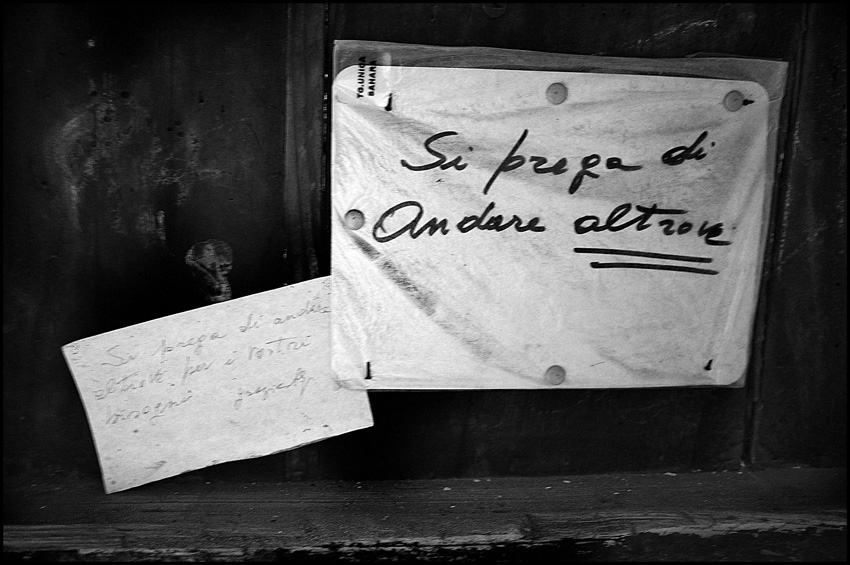 TG.UNICA
SAHARA
Si prega di
Andare altrove
Si prega di andare
altrove per i vostri
bisogni grazie